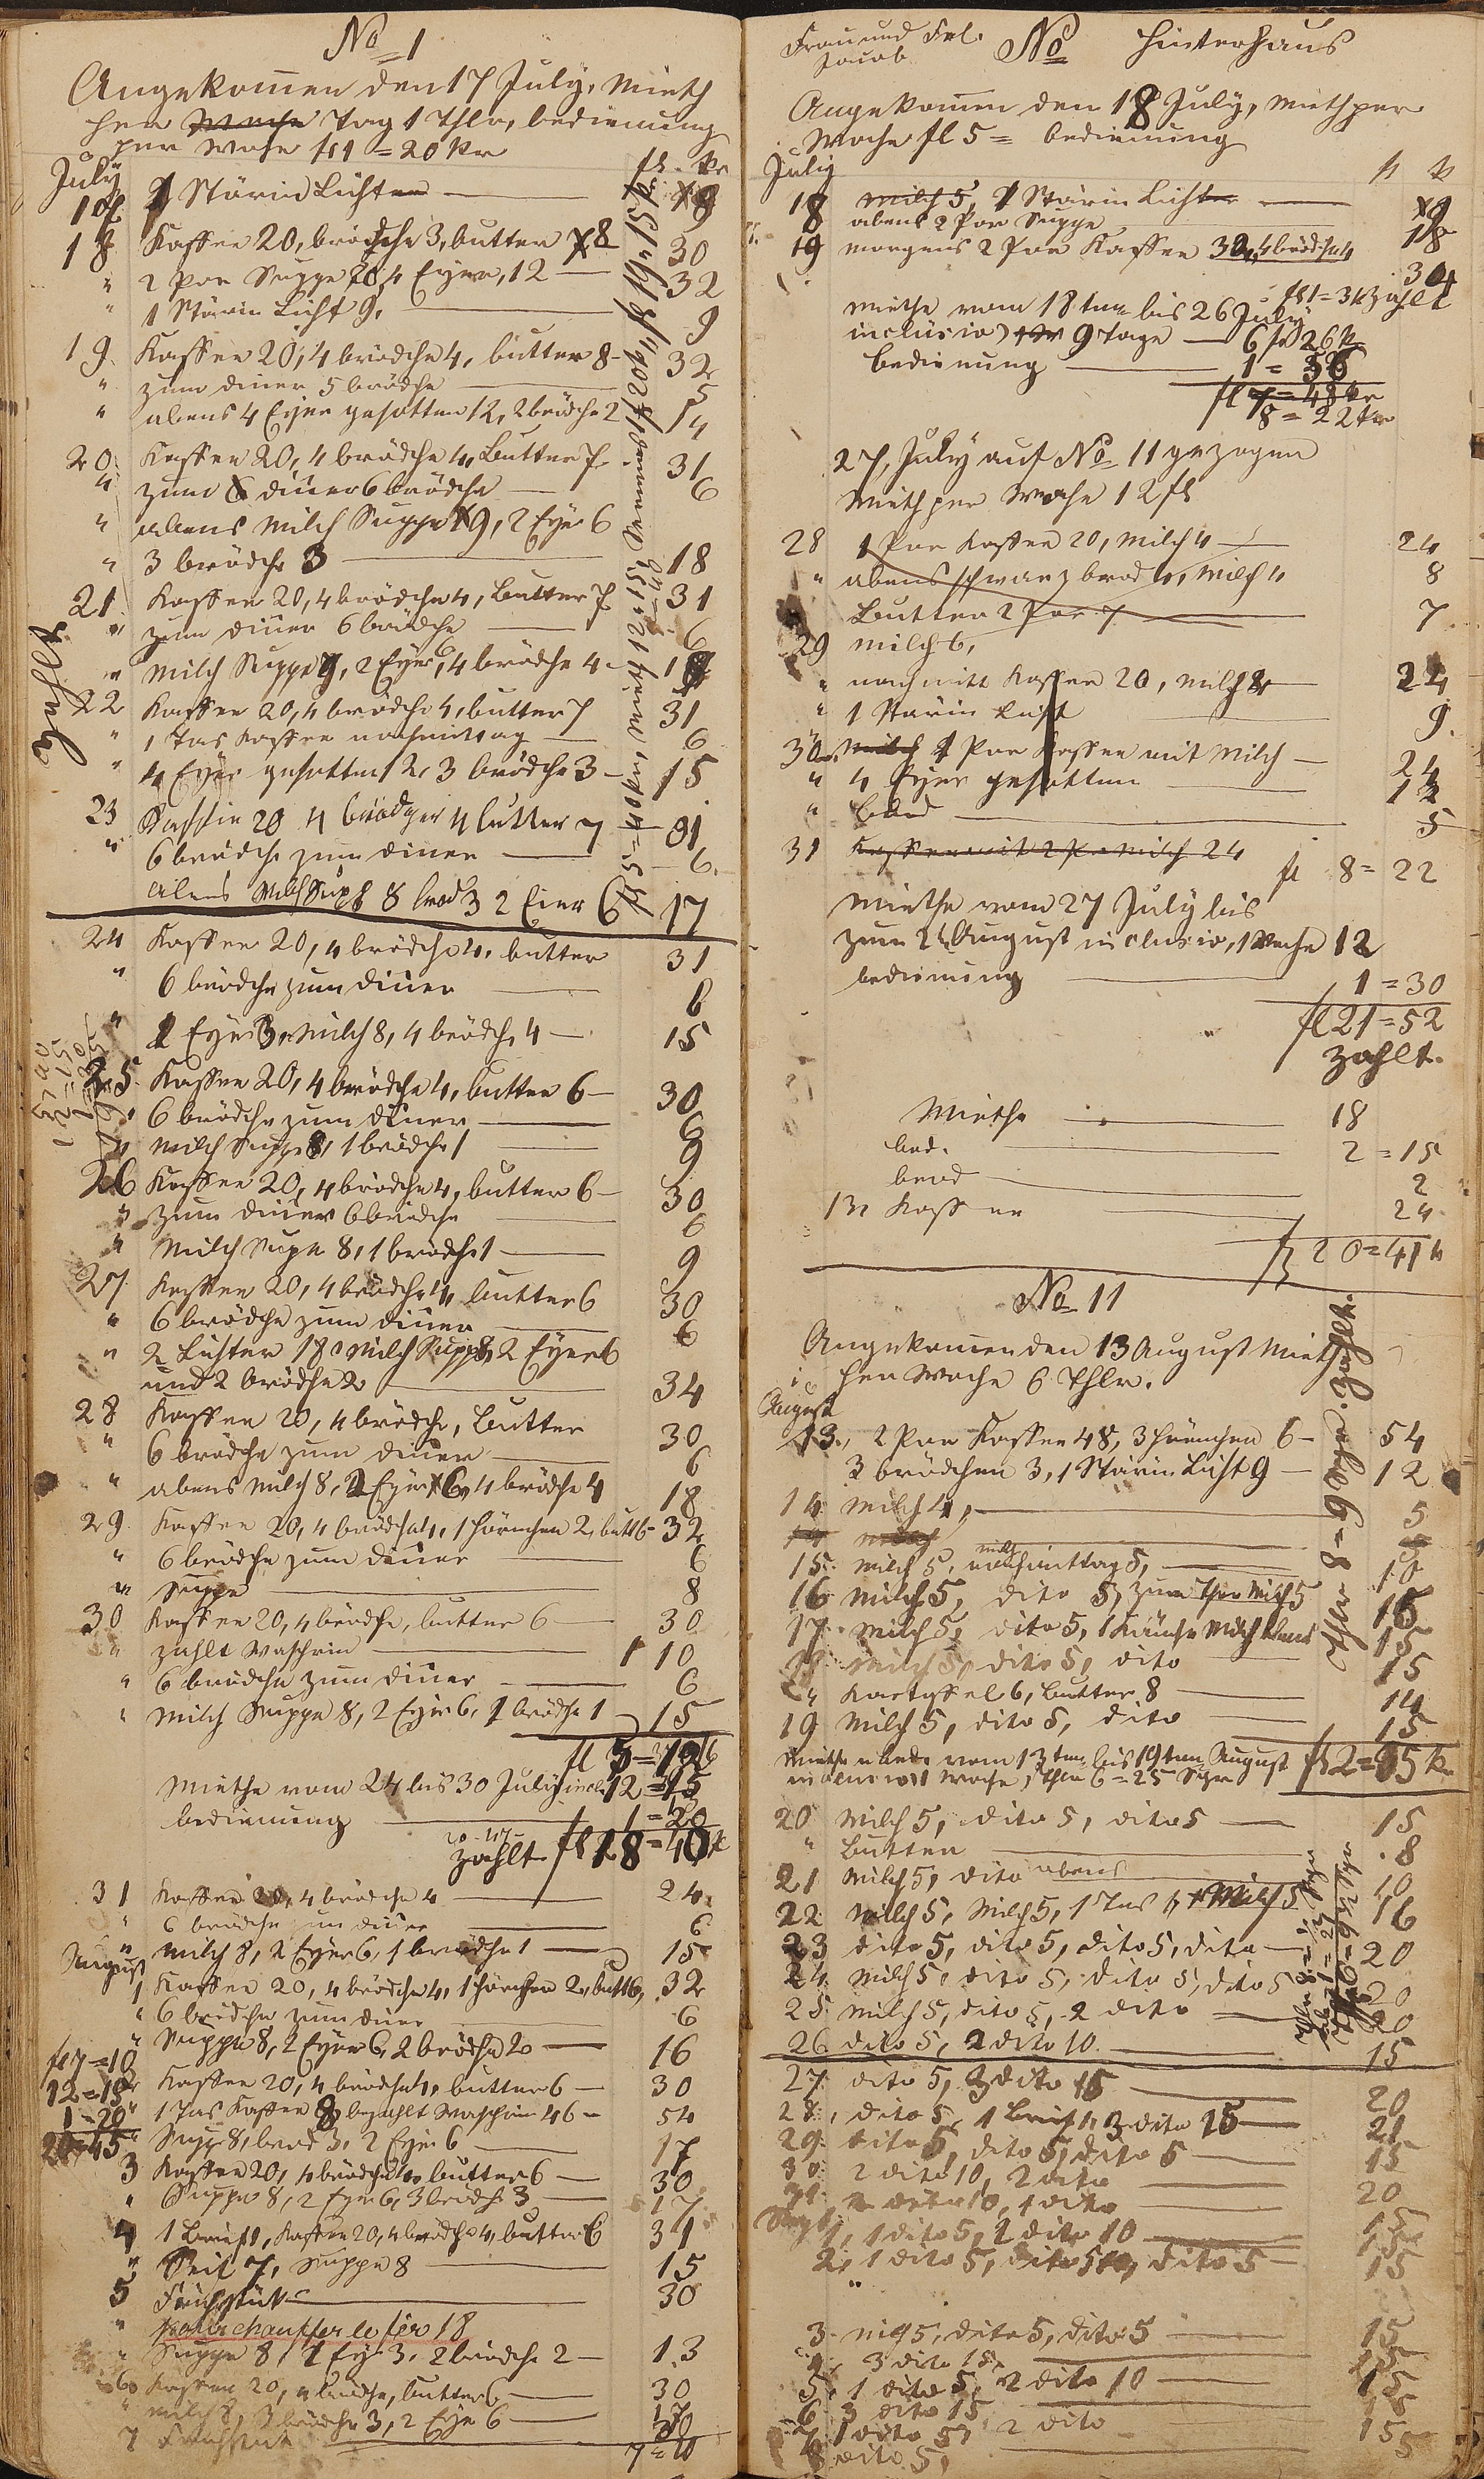 No 1
Angekom̄en den 17 July, Mieth
per Woche Tag 1 Thlr, bedienung
per Woche fl 1 = 20 Kr
July fl. Kr
17 1 Stärin Lichter 9
18 Kaffee 20, brödche 3, butter 8 30
" 2 Por Suppe 20, 4 Eyer, 12 32
" 1 Stärin Licht 9, 9
19. Kaffee 20, 4 brödche 4, butter 8 - 32
" zum diner 5 brödche 5
" abens 4 Eyer gesotten 12, 2 brödche 2 14
20. Kaffee 20, 4 brödche 4, Butter 7. 31
" zum diner 6 brödche 6
" abens Milch Suppe 9, 2 Eyer 6
" 3 brödche 3 18
21. Kaffee 20, 4 brödche 4, Butter 7 31
" zum diner 6 brödche 6
" Milch Suppe 9, 2 Eyer 6, 4 brödche 4 -
22 Kaffee 20, 4 brödche 4, butter 7 31
" 1 Tas Kaffee nachmittag 6
" 4 Eyer gesotten 12, 3 brödche 3 - 15
23 Kaffee 20 4 brödger 4 butter 7 31
" 6 brödche zum diner 6.
abens Milch Supp 8 brod 3 2 Eier 6 17
zahlt
24 Kaffee 20, 4 brödche 4, butter 31
" 6 brödche zum diner 6
" 2 Eyer 3, Milch 8, 4 brödche 4 - 15
25. Kaffee 20, 4 brödche 4, butter 6 - 30
" 6 brödche zum diner 6
" Milch Suppe 8, 1 brödche 1 9
26 Kaffee 20, 4 brödche 4, butter 6 - 30
" zum diner 6 brödche 6
" Milch Supe 8, 1 brödche 1 9
27. Kaffee 20, 4 brödche 4, butter 6 30
" 6 brödche zum diner 6
" 2 Lichter 18, Milch Suppe 8, 2 Eyer 6
und 2 brödche 2 34
28 Kaffee 20, 4 brödche, Butter 30
" 6 brödche zum diner 6
" abens Milch 8, 2 Eyer 6, 4 brödche 4 18
29. Kaffee 20, 4 brödche 4, 1 hörnchen 2, butt 6 32
" 6 brödche zum diner 6
" Suppe 8
30 Kaffee 20, 4 brödche, butter 6 30
" zahlt Waschrin 1 10
" 6 brödche zum diner 6
" Milch Suppe 8, 2 Eyer 6, 1 brödche 1 15
Miethe vom 24 bis 30 July incl. 12 = 15
bedienung 1 = 20
zahlt fl 18 = 40
31 Kaffee 20, 4 brödche 4 24
" 6 brödche zum diner 6
" Milch 8, 2 Eyer 6, 1 brödche 1 15
August
1 Kaffee 20, 4 brödche 4, 1 hörnchen 2, butt 6, 32
" 6 brödche zum diner 6
" Suppe 8, 2 Eyer 6, 2 brödche 2 16
2 Kaffee 20, 4 brödche 4, butter 6 - 30
" 1 Tas Kaffee 8, bezahlt Waschrin 46 - 54
" Supp 8, brod 3, 2 Eyer 6 17
fl 7 = 10
12 = 15
1 - 20
20 = 45
3 Kaffee 20, 4 brödche 4, butter 6 - 30
" Suppe 8, 2 Eyer 6, 3 brödche 3 17
4 1 Brief 1, Kaffee 20, 4 brödche 4, butter 6 31
" Seif 7, Suppe 8 15
5 Früstük 30
" pour chauffer le fer 18
" Suppe 8, 1 Eyer 3, 2 brödche 2 - 13
6 Kaffee 20, 4 brödche, butter 6 30
" Milch 8, 3 brödche 3, 2 Eyer 6 17
7 Früstük 30
7 = 10
Frau und Frl.
Jacob
No Hinterhaus
Angekom̄en den 18 July, Mieth per
Woche fl 5 = bedienung
July fl kr
18 Milch 5, 1 Stärin Lichte 9
abens 2 Por Suppe 18
19 morgens 2 Por Kaffee 30, 4 brödche 4 34
fl 1 = 3 kr zahlt
Miethe vom 18ten bis 26 July
inclusiv 9 Tage 6 fl 26 kr
bedienung 1 = 56
8 = 22 kr
27. July auf No 11 gezogen
Mieth per Woche 12 fl
28 1 Por Kaffee 20, Milch 4 24
" abens schwarz brod 4, Milch 4 8
Butter 2 Por 7 7
29 Milch 6,
" nachmitt Kaffee 20, Milch 4 24
" 1 Stärin Licht 9.
30 Milch 1 Por Kaffee mit Milch 24
" 4 Eyer gesotten 12
" brod 5
31 Kaffee mit 2 Por Milch 24
fl 8 = 22
Miethe vom 27 July bis
zum 2t August inclusiv, 1 Woche 12
bedienung 1 = 30
fl 21 = 52
zahlt.
Miethe 18
bed. 2 = 15
brod 2
13 Kaffee 24
fl 20 = 41 k
No 11
Angekom̄en den 13 August Mieth
per Woche 6 Thlr.
August
13., 2 Por Kaffee 48, 3 hörnchen 6 - 54
3 brödchen 3, 1 Stärin Licht 9 12
14 Milch 4, 5
15. Milch 5, Milch nachmittag 5, 10
16 Milch 5, dito 5, zum Thee Milch 5 15
17. Milch 5, dito 5, 1 Känche Milch abens 15
18 Milch 5, dito 5, dito 15
" Kartoffel 6, Butter 8 14
19 Milch 5, dito 5, dito 15
Miethe u. bed. vom 13ten bis 19ten August fl 2 = 35 Kr
inclusiv 1 Woche, Thlr 6 = 25 Sgr
Thlr 8 = 9 Sgr. zahlt.
20 Milch 5, dito 5, dito 5 15
" Butter 8
21 Milch 5, dito abens 10
22 Milch 5, Milch 5, 1 Tas 1, Milch 5 16
23 dito 5, dito 5, dito 5, dito 20
24 Milch 5, dito 5, dito 5, dito 5 20
25 Milch 5, dito 5, 2 dito 20
26 dito 5, 2 dito 10. 15
27. dito 5, 3 dito 15 20
28, dito 5, 1 Brief 1, 3 dito 15 21
29. dito 5, dito 5, dito 5 15
30 2 dito 10, 2 dito 20
31. 2 dito 10, 1 dito 15
Sept
1, 1 dito 5, 2 dito 10 15
2, 1 dito 5, dito 5, dito 5 15
3. 5, dito 5, dito 5 15
4, 3 dito 15, 15
5. 1 dito 5, 2 dito 10 15
6 3 dito 15 15
7. 1 dito 5, 2 dito 15
8 dito 5, 5